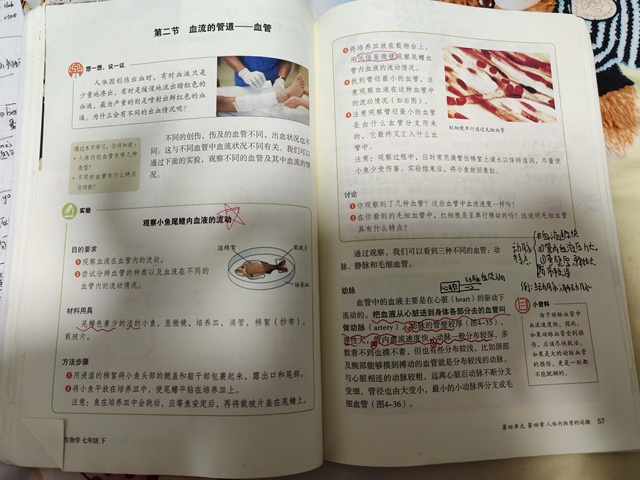 第二节 血流的管道——血管
想一想，议一议
人体因创伤出血时，有时血液只是
少量地渗出，有时是缓慢地流出暗红色的
血液，最为严重的则是喷射出鲜红色的血
液。为什么会有不同的出血情况呢？
通过本节学习，你将知道：
人体内的血管有哪几种
类型？
不同的血管有什么特点
与功能？
不同的创伤，伤及的血管不同，出血状况也不
同。这与不同血管中血流状况不同有关。我们可以
通过下面的实验，观察不同的血管及其中血流的情
况。
实验
观察小鱼尾鳍内血液的流动
目的要求
1 观察血液在血管内的流动。
2 尝试分辨血管的种类以及血液在不同的
血管内的流动情况。
湿棉絮
载玻片
培养皿
材料用具
尾鳍色素少的活的小鱼，显微镜，培养皿，滴管，棉絮（纱布），
载玻片。
方法步骤
1 用浸湿的棉絮将小鱼头部的鳃盖和躯干部包裹起来，露出口和尾部。
2 将小鱼平放在培养皿中，使尾鳍平贴在培养皿上。
注意：鱼在培养皿中会跳动，应等鱼安定后，再将载玻片盖在尾鳍上。
生物学 七年级 下
3 将培养皿放在载物台上，
用低倍显微镜观察尾鳍血
管内血液的流动情况。
4 找到管径最小的血管，注
意观察血液在这种血管中
的流动情况（如右图）。
5 注意观察管径最小的血管
是由什么血管分支而来
的，它最终又汇入什么血
管中。
红细胞单行通过毛细血管
注意：观察过程中，应时常用滴管往棉絮上滴水以保持湿润，尽量使
小鱼少受伤害。实验结束后，将小鱼放回鱼缸。
讨论
1 你观察到了几种血管？这些血管中血流速度一样吗？
2 在你看到的毛细血管中，红细胞是呈单行移动的吗？这说明毛细血管
具有什么特点？
通过观察，我们可以看到三种不同的血管：动
脉、静脉和毛细血管。
动脉
特点
动脉
心脏
血管中的血液主要是在心脏（heart）的驱动下
流动的。把血液从心脏送到身体各部分去的血管叫
做动脉（artery）。动脉的管壁较厚（图4-35），
弹性大，管内血流速度快。动脉一般分布较深，多
数看不到也摸不着，但也有些分布较浅，比如颈部
及腕部能够摸到搏动的血管就是分布较浅的动脉。
与心脏相连的动脉较粗，远离心脏后动脉不断分支
变细，管径也由大变小，最小的小动脉再分支成毛
细血管（图4-36）。
小资料
由于动脉血管中
血流速度快，因此，
如果动脉血管受到损
伤，应该尽快救治。
如果是大的动脉血管
的损伤，更是一刻都
不能耽搁的。
第四单元 第四章 人体内物质的运输 57